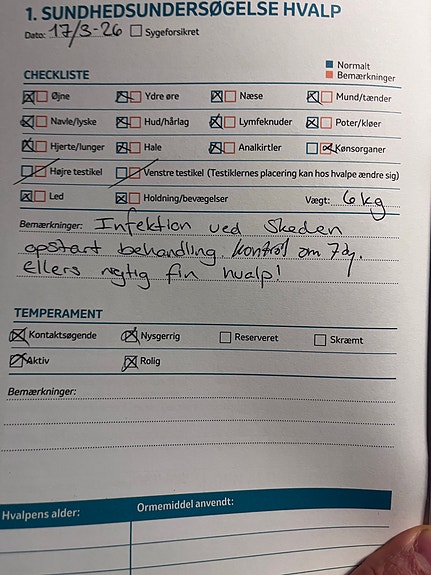 1. SUNDHEDSUNDERSØGELSE HVALP
Dato: 17/3-26 Sygeforsikret
Normalt
CHECKLISTE Bemærkninger
Øjne Ydre øre Næse Mund/tænder
Navle/lyske Hud/hårlag Lymfeknuder Poter/kløer
Hjerte/lunger Hale Analkirtler Kønsorganer
Højre testikel Venstre testikel (Testiklernes placering kan hos hvalpe ændre sig)
Led Holdning/bevægelser Vægt: 6 kg
Bemærkninger: Infektion ved skeden
opstart behandling. kontrol om 7dg.
ellers rigtig fin hvalp!
TEMPERAMENT
Kontaktsøgende Nysgerrig Reserveret Skræmt
Aktiv Rolig
Bemærkninger:
Hvalpens alder: Ormemiddel anvendt: